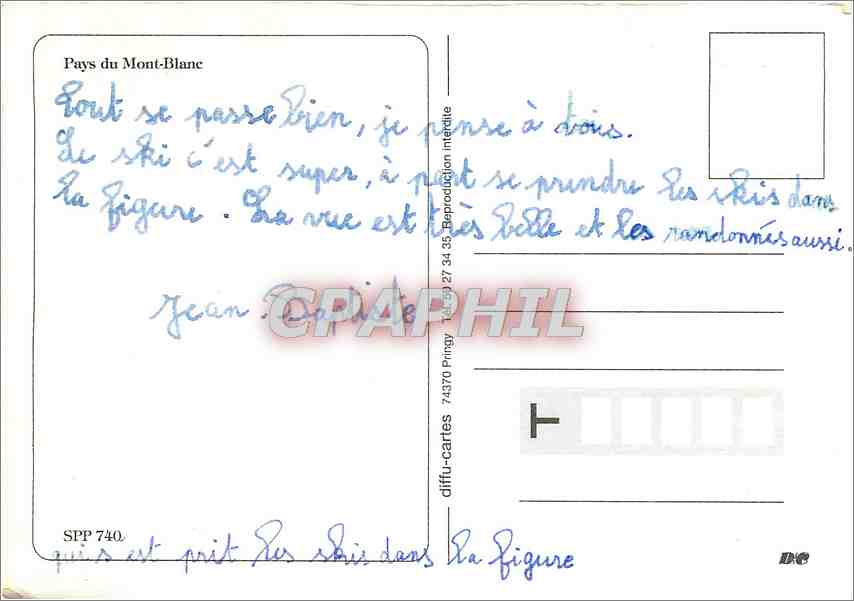 Pays du Mont-Blanc
Tout se passe bien, je pense à tois.
Le ski c'est super, à part se prendre les skis dans
la figure. La vue est très belle et les randonnés aussi.
Jean Baptiste
CPAPHIL
diffu-cartes 74370 Pringy Tél. 50 27 34 35 Reproduction interdite
T
SPP 740
qui s est prit les skis dans la figure
D/C